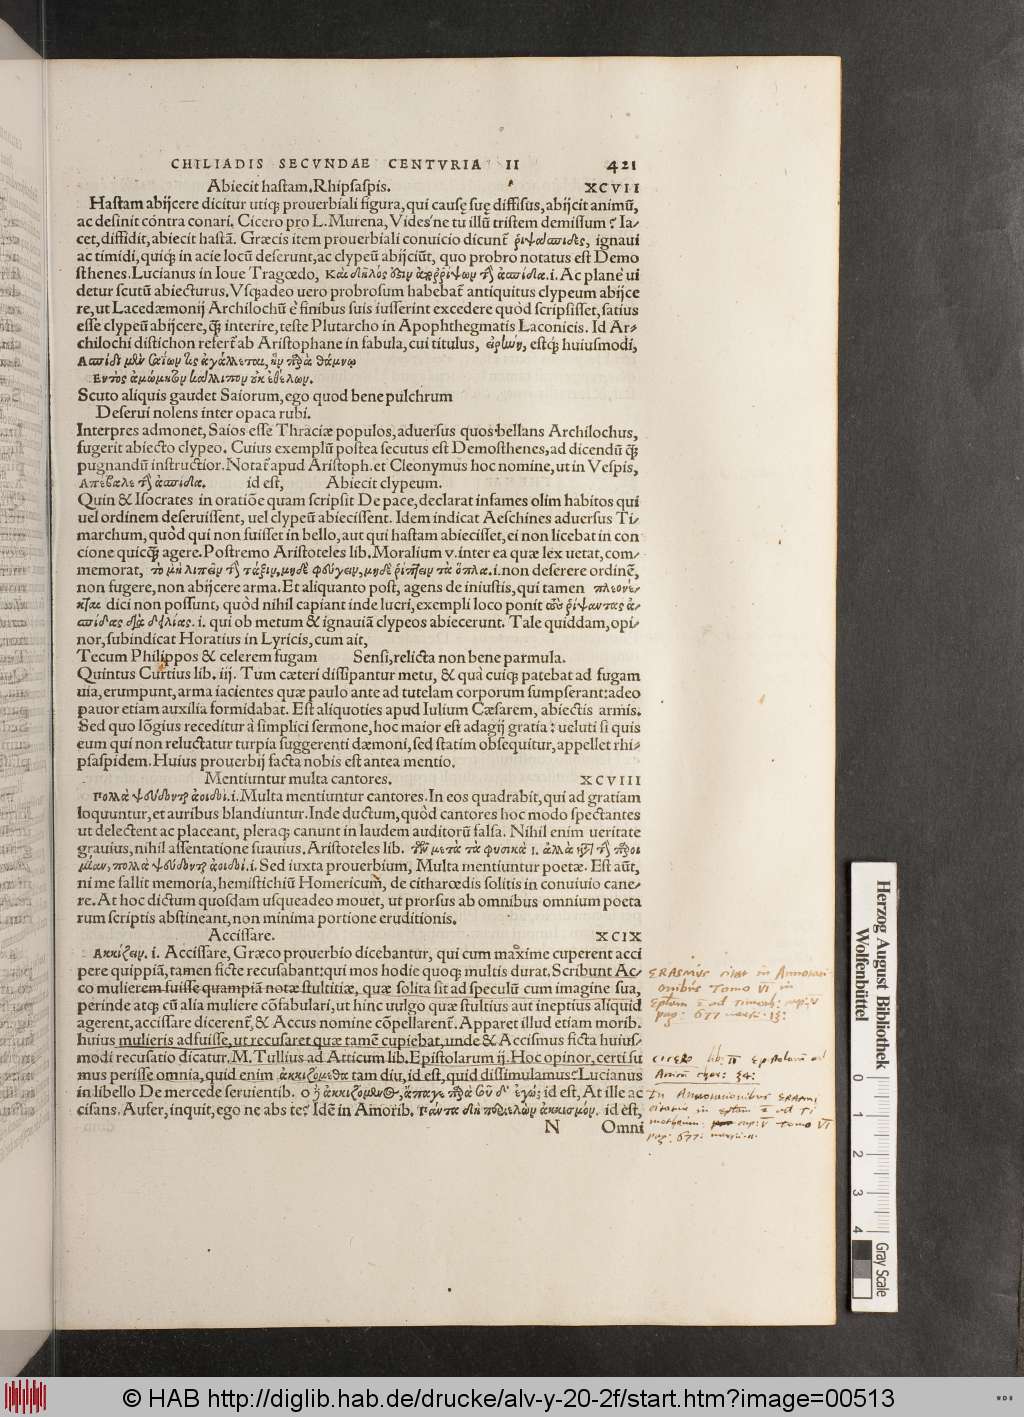 CHILIADIS SECVNDAE CENTVRIA II 421
Abiecit hastam. Rhipsaspis. XCVII
Hastam abijcere dicitur utiq; prouerbiali figura, qui causę suę diffisus, abijcit animũ,
ac desinit contra conari. Cicero pro L. Murena, Vides'ne tu illũ tristem demissum? Ia-
cet, diffidit, abiecit hastã. Græcis item prouerbiali conuicio dicunt̃ ῥιψάσπιδες, ignaui
ac timidi, quiq; in acie locũ deserunt, ac clypeũ abijciũt, quo probro notatus est Demo
sthenes. Lucianus in Ioue Tragœdo, .i. Ac plane ui
detur scutũ abiecturus. Vsq;adeo uero probrosum habebat̃ antiquitus clypeum abijce
re, ut Lacedæmonij Archilochũ e finibus suis iusserint excedere quòd scripsisset, satius
esse clypeũ abijcere, q̃; interire, teste Plutarcho in Apophthegmatis Laconicis. Id Ar-
chilochi distichon refert̃ ab Aristophane in fabula, cui titulus, εἰρήνη, estq; huiusmodi,
Ἀσπίδι μὲν Σαΐων τις ἀγάλλεται, ἣν παρὰ θάμνῳ
Ἐντὸς ἀμώμητον κάλλιπον οὐκ ἐθέλων.
Scuto aliquis gaudet Saiorum, ego quod bene pulchrum
Deserui nolens inter opaca rubi.
Interpres admonet, Saios esse Thraciæ populos, aduersus quos bellans Archilochus,
fugerit abiecto clypeo. Cuius exemplũ postea secutus est Demosthenes, ad dicendũ q̃;
pugnandũ instructior. Notat̃ apud Aristoph. et Cleonymus hoc nomine, ut in Vespis,
Ἀπέβαλε τὴν ἀσπίδα. id est, Abiecit clypeum.
Quin & Isocrates in oratiõe quam scripsit De pace, declarat infames olim habitos qui
uel ordinem deseruissent, uel clypeũ abiecissent. Idem indicat Aeschines aduersus Ti-
marchum, quòd qui non fuisset in bello, aut qui hastam abiecisset, ei non licebat in con
cione quicq̃; agere. Postremo Aristoteles lib. Moralium v. inter ea quæ lex uetat, com-
memorat, τὸ μὴ λιπεῖν τὴν τάξιν, μηδὲ φεύγειν, μηδὲ ῥιπτεῖν τὰ ὅπλα. .i. non deserere ordinẽ,
non fugere, non abijcere arma. Et aliquanto post, agens de iniustis, qui tamen πλεονέ-
κται dici non possunt, quòd nihil capiant inde lucri, exempli loco ponit τοὺς ῥίψαντας ἀ-
σπίδας διὰ δειλίας. .i. qui ob metum & ignauiã clypeos abiecerunt. Tale quiddam, opi-
nor, subindicat Horatius in Lyricis, cum ait,
Tecum Philippos & celerem fugam Sensi, relicta non bene parmula.
Quintus Curtius lib. iij. Tum cæteri dissipantur metu, & quà cuiq; patebat ad fugam
uia, erumpunt, arma iacientes quæ paulo ante ad tutelam corporum sumpserant: adeo
pauor etiam auxilia formidabat. Est aliquoties apud Iulium Cæsarem, abiectis armis.
Sed quo lõgius receditur à simplici sermone, hoc maior est adagij gratia: ueluti si quis
eum qui non reluctatur turpia suggerenti dæmoni, sed statim obsequitur, appellet rhi-
psaspidem. Huius prouerbij facta nobis est antea mentio.
Mentiuntur multa cantores. XCVIII
Πολλὰ ψεύδονται ἀοιδοί. .i. Multa mentiuntur cantores. In eos quadrabit, qui ad gratiam
loquuntur, et auribus blandiuntur. Inde ductum, quòd cantores hoc modo spectantes
ut delectent ac placeant, pleraq; canunt in laudem auditorũ falsa. Nihil enim ueritate
grauius, nihil assentatione suauius. Aristoteles lib. τῶν μετὰ τὰ φυσικὰ ι. ἀλλὰ κατὰ τὴν παροι
μίαν, πολλὰ ψεύδονται ἀοιδοί. .i. Sed iuxta prouerbium, Multa mentiuntur poetæ. Est aũt,
ni me fallit memoria, hemistichiũ Homericum, de citharœdis solitis in conuiuio cane-
re. At hoc dictum quosdam usqueadeo mouet, ut prorsus ab omnibus omnium poeta
rum scriptis abstineant, non minima portione eruditionis.
Accissare. XCIX
Ἀκκίζειν. .i. Accissare, Græco prouerbio dicebantur, qui cum maxime cuperent acci
pere quippiã, tamen ficte recusabant: qui mos hodie quoq; multis durat. Scribunt Ac-
co mulierem fuisse quampiã notæ stultitiæ, quæ solita sit ad speculũ cum imagine sua,
perinde atq; cũ alia muliere cõfabulari, ut hinc uulgo quæ stultius aut ineptius aliquid
agerent, accissare dicerent̃, & Accus nomine cõpellarent̃. Apparet illud etiam morib.
huius mulieris adfuisse, ut recusaret quæ tamẽ cupiebat, unde & Accismus ficta huius-
modi recusatio dicatur. M. Tullius ad Atticum lib. Epistolarum ij. Hoc opinor, certi su
mus perisse omnia, quid enim ἀκκιζόμεθα tam diu, id est, quid dissimulamus? Lucianus
in libello De mercede seruientib. ὁ ἀκκιζόμενος, ἄπαγε παρὰ σοῦ δ' ἐγώ; id est, At ille ac
cisans. Aufer, inquit, ego ne abs te? Idẽ in Amorib. Πάντα ἀκκισμόν. id est,
N Omni
ERASMUS citat in Annotati
onibus Tomo VI in
Epistam ad Timoth: cap: V
pag: 677
CICERO lib: II Epistolarum ad
Atticum
In Annotationibus ERASMI
citatur in ad Ti
motheum cap: V Tomo VI
pag: 677:
Herzog August Bibliothek
Wolfenbüttel
0
1
2
3
4
Gray Scale
© HAB http://diglib.hab.de/drucke/alv-y-20-2f/start.htm?image=00513
WDB